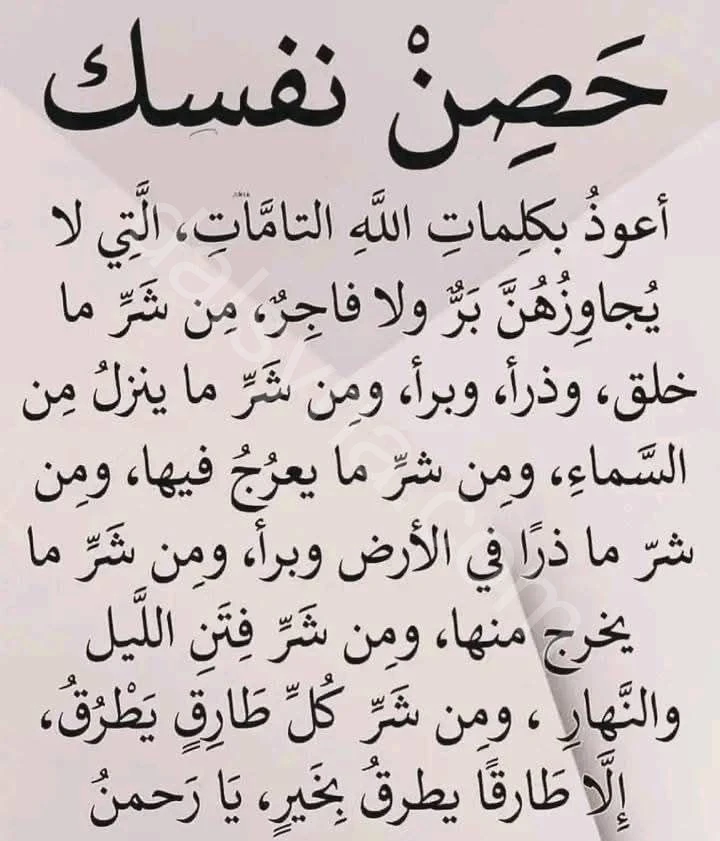 حَصِنْ نفسِك
أعوذُ بكلِماتِ اللَّهِ التامَّاتِ، الَّتِي لا
يُجاوِزُهُنَّ بَرٌّ ولا فاجِرٌ، مِن شَرِّ ما
خلق، وذرأ، وبرأ، ومِن شَرِّ ما ينزلُ مِن
السَّماءِ، ومِن شرِّ ما يعرُجُ فيها، ومِن
شرّ ما ذرًا في الأرض وبرأ، ومِن شَرِّ ما
يخرج منها، ومِن شَرِّ فِتَنِ اللَّيل
والنَّهارِ ، ومِن شَرِّ كُلِّ طَارِقٍ يَطْرُقُ،
إِلَّا طَارقًا يطرقُ بِخَيرٍ، يَا رَحمنُ